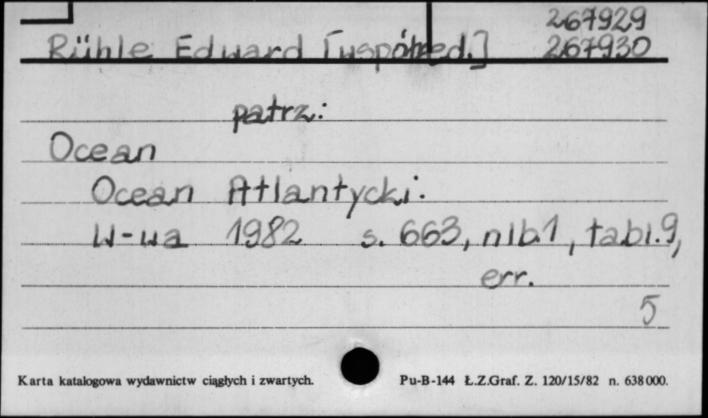 267929
Rühle Eduard [współred.] 267930
patrz:
Ocean
Ocean Atlantycki.
W-wa 1982 s. 663, nlb.1, tabl.9,
err.
5
Karta katalogowa wydawnictw ciągłych i zwartych. Pu-B-144 Ł.Z.Graf. Z. 120/15/82 n. 638000.